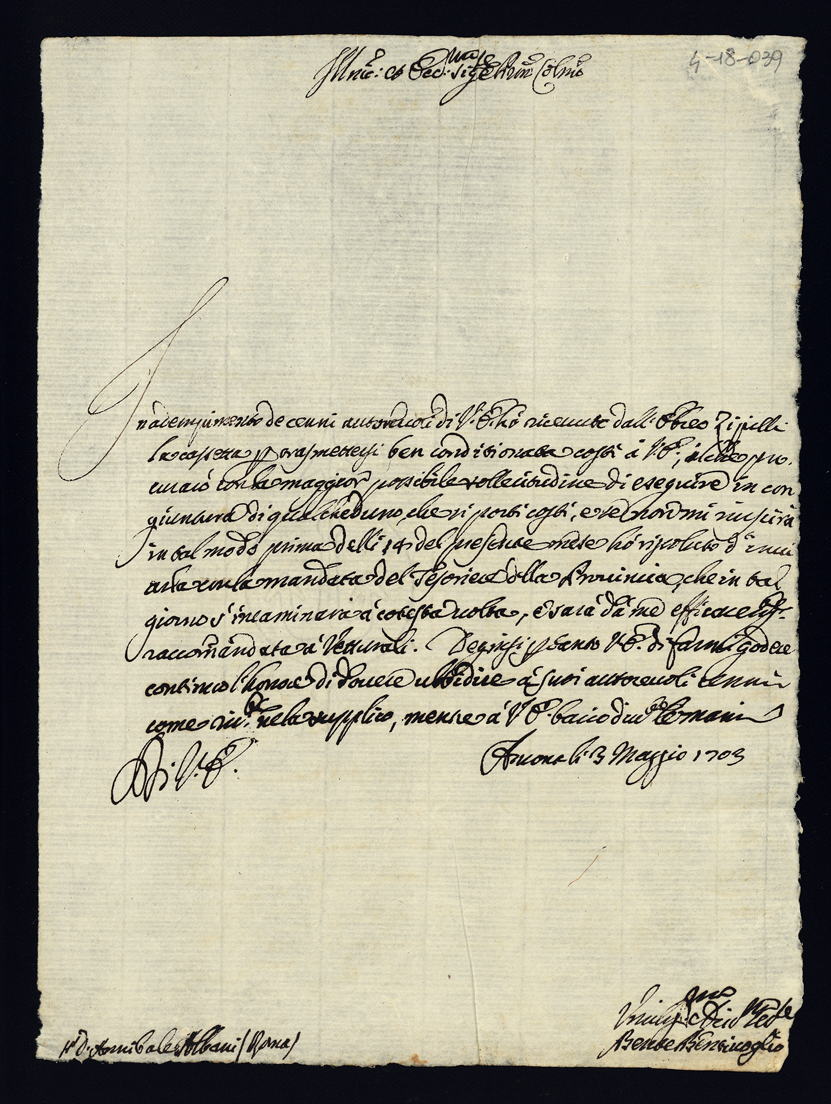 4-18-039
Ill.mo et Ecc.mo Sig.re P.rone Col.mo
In adempimento de cenni autoreuoli di V.E. hò riceuuto dall' Ebreo Zipilli
la cassetta p trasmettersi ben conditionata costì à V.E., il che pro-
curarò con la maggior possibile sollecitudine di eseguire in con
giuntura di qualcheduno, che si porti costì, e se non mi riuscirà
in tal modo prima delli 14 del presente mese hò risoluto d'inui
arla con la mandata del Tesoriere della Prouincia, che in tal
giorno s'incaminarà à cotesta uolta, e sarà da me
raccomandata à Vetturali. Degnisi p tanto V.E. di farmi godere
continuo l'honore di douere ubbidire à suoi autoreuoli cenni
come ne la supplico, mentre à V.E. bacio le mani
Di V.E.
Ancona li 3 Maggio 1703
D. Annibale Albani (Roma)
Bentiuoglio